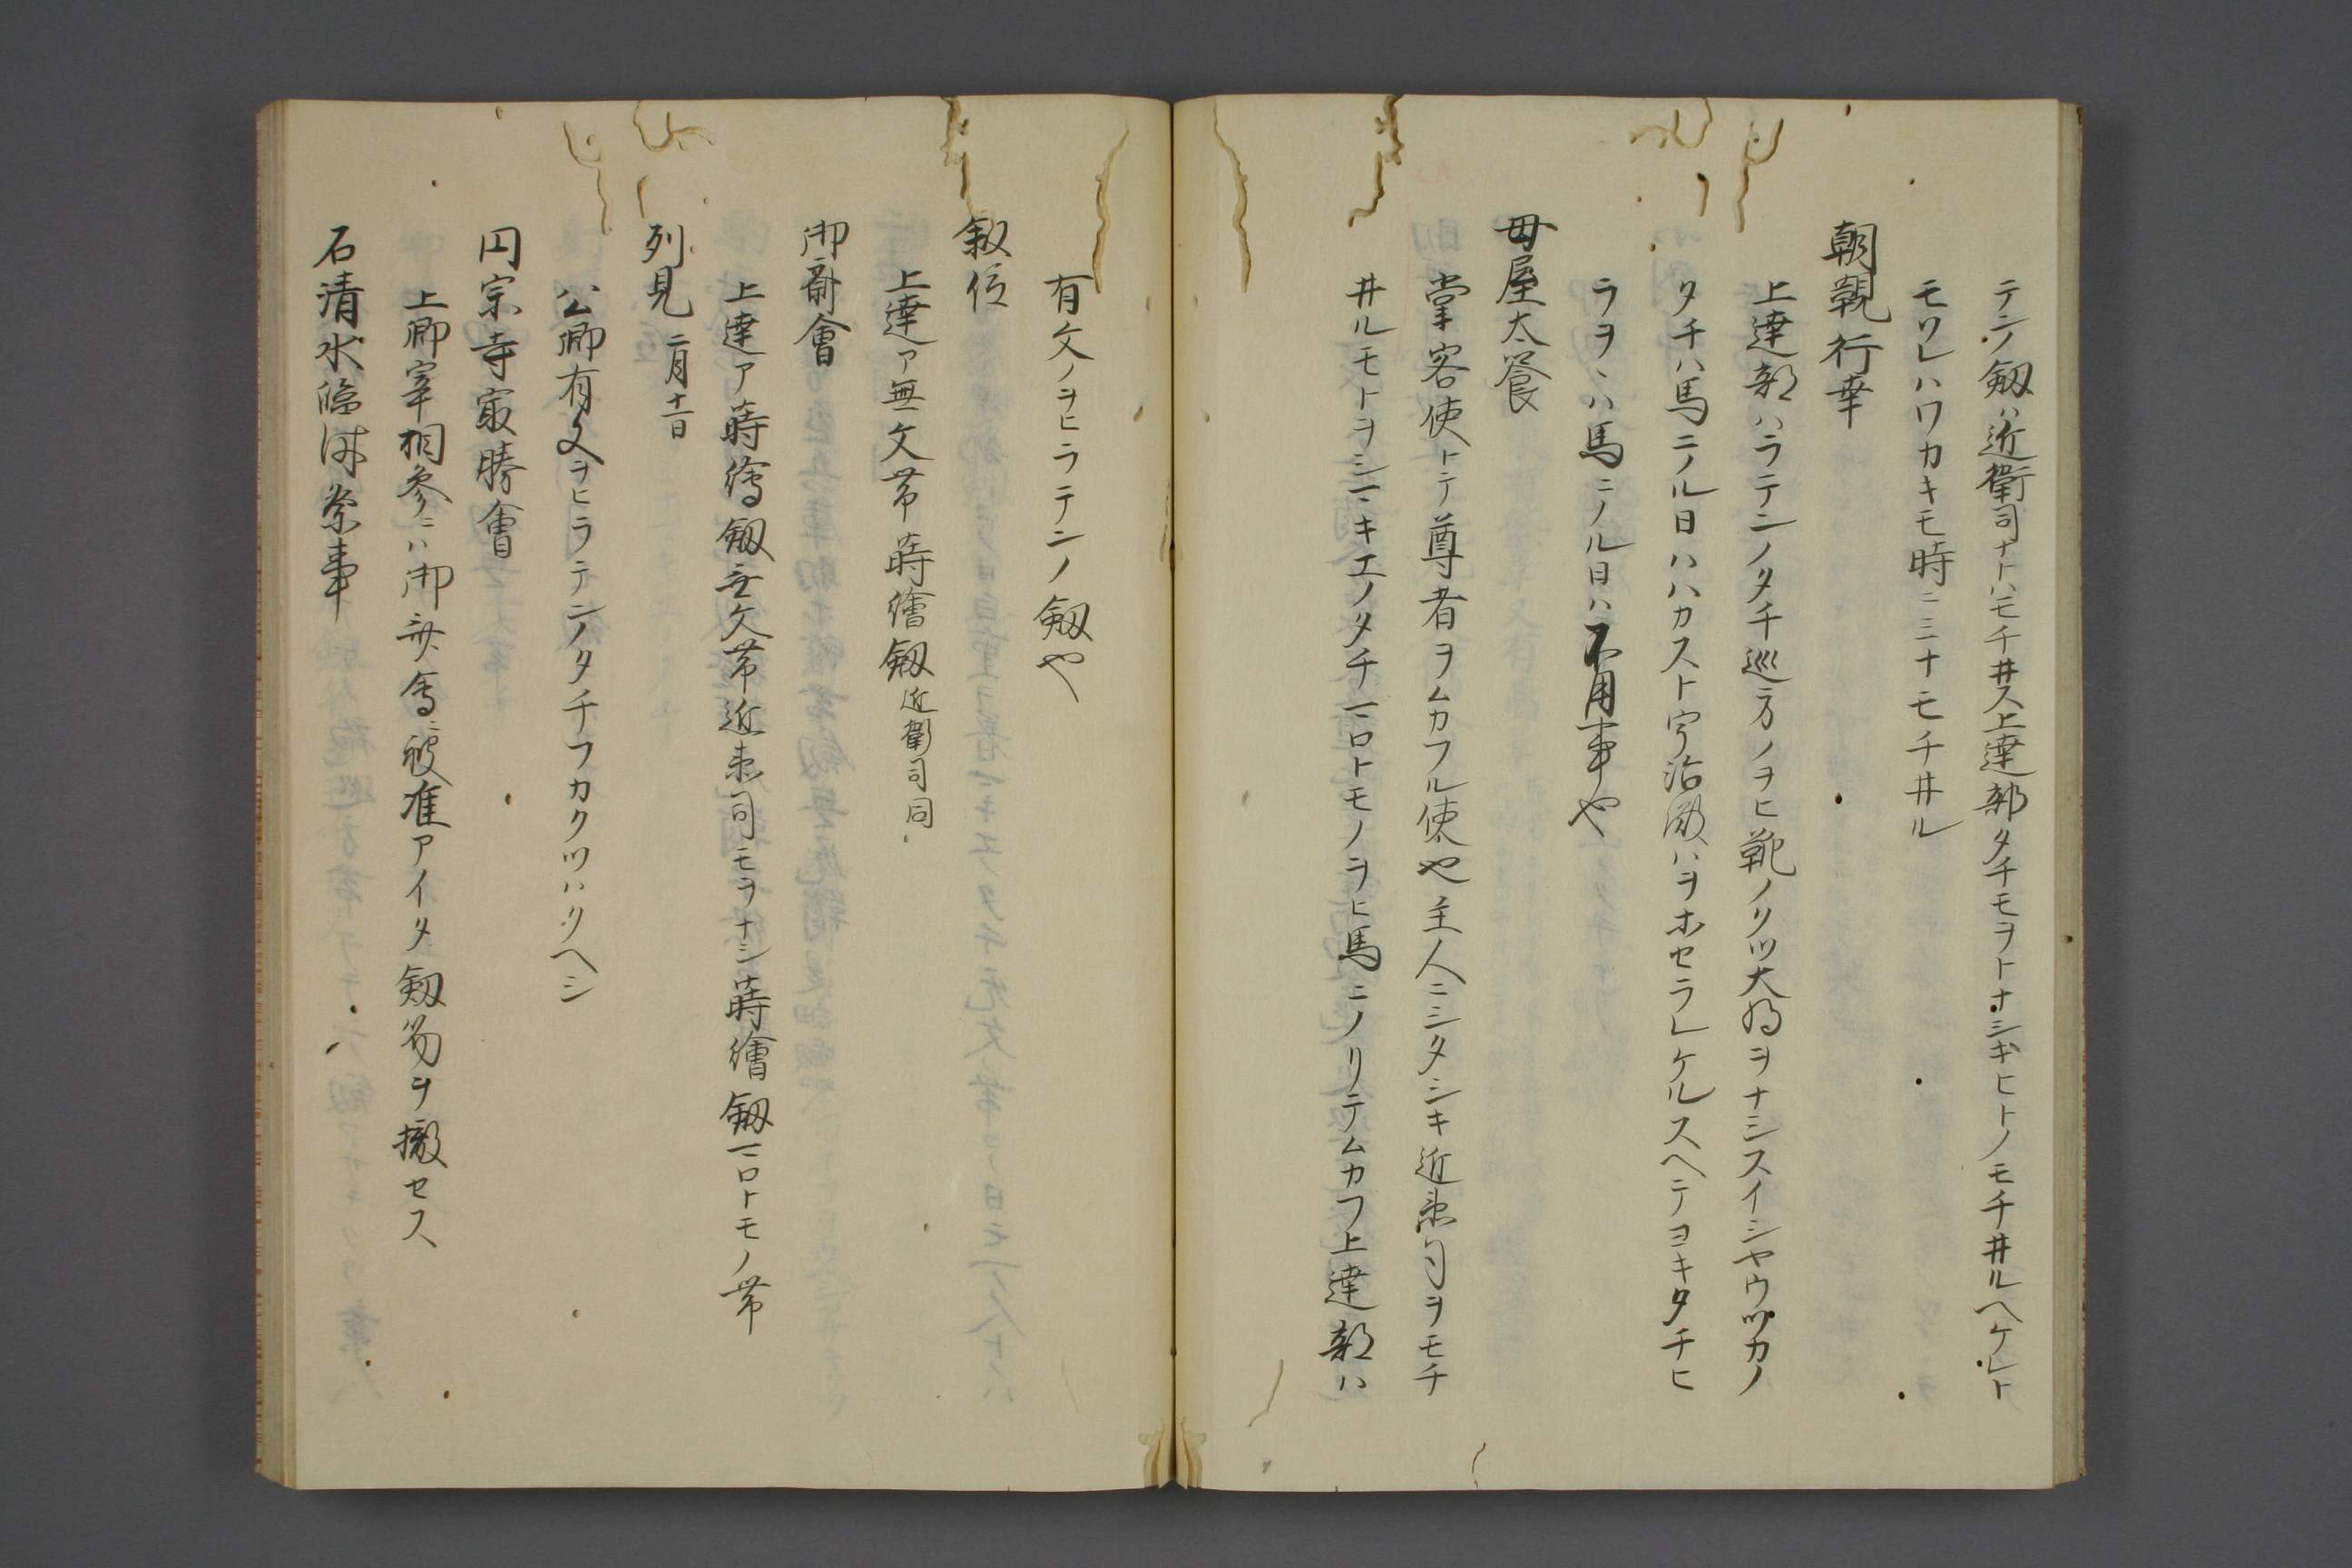 テンノ釼ハ近衛司ナトハモチ井ス上達部タチモヲトナシキヒトノモチ井ルヘケレト
モワレハワカキモ時ニミナモチ井ル
朝覲行幸
上達部ハラテンノタチ巡方ノヲヒ靴ノクツ大将ヲナシスイシヤウツカノ
タチハ馬ニノル日ハハカスト宇治殿ハヲホセラレケルスヘテヨキタチヒ
ラヲヽハ馬ニノル日ハ不用事や
母屋大饗
掌客使トテ尊者ヲムカフル使や主人ニシタシキ近衛司ヲモチ
井ルモトヲシマキエノタチマロトモノヲヒ馬ニノリテムカフ上達部ハ
有文ノヲヒラテンノ釼や
叙位
上達ア無文帯蒔繪釼近衛司同
御斎會
上達ア蒔繪釼無文帯近衛司モヲナシ蒔繪釼マロトモノ帯
列見二月十一日
公卿有文ヲヒラテンノタチフカクツハクヘシ
円宗寺最勝會
上卿宰相参ニハ御斎會ニ被准アイタ釼笏ヲ撤セス
石清水臨時祭事